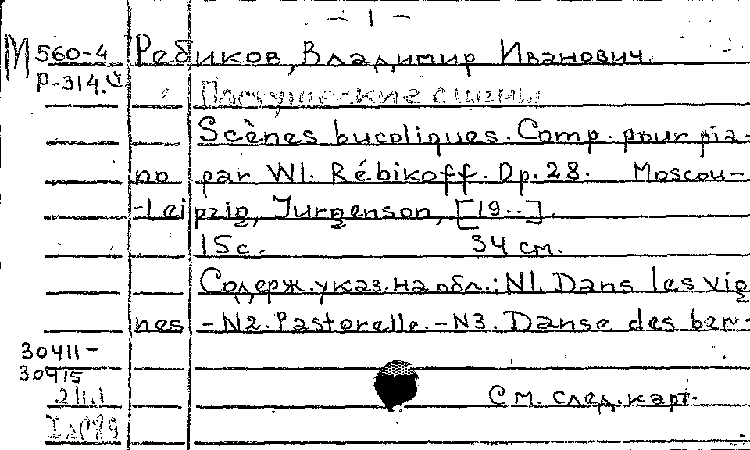 - 1 -
М 560-4 Ребиков, Владимир Иванович.
Р-314.
Пастушеские сцены
Scènes bucoliques. Comp. pour pia-
no par Wl. Rébikoff. Op. 28. Moscou-
-Leipzig, Jurgenson, [19..].
15 с. 34 см.
Содерж. указ. на обл.: N1. Dans les vig
nes - N2. Pastorelle. - N3. Danse des ber-
30411-
30415
См. след. карт.